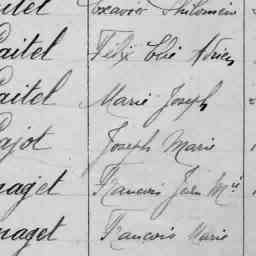 Philomène
aitel Félix Elie Adrien
aitel Marie Joseph
ajot Joseph Marie
naget Francois Jean Mie
naget Francois Marie